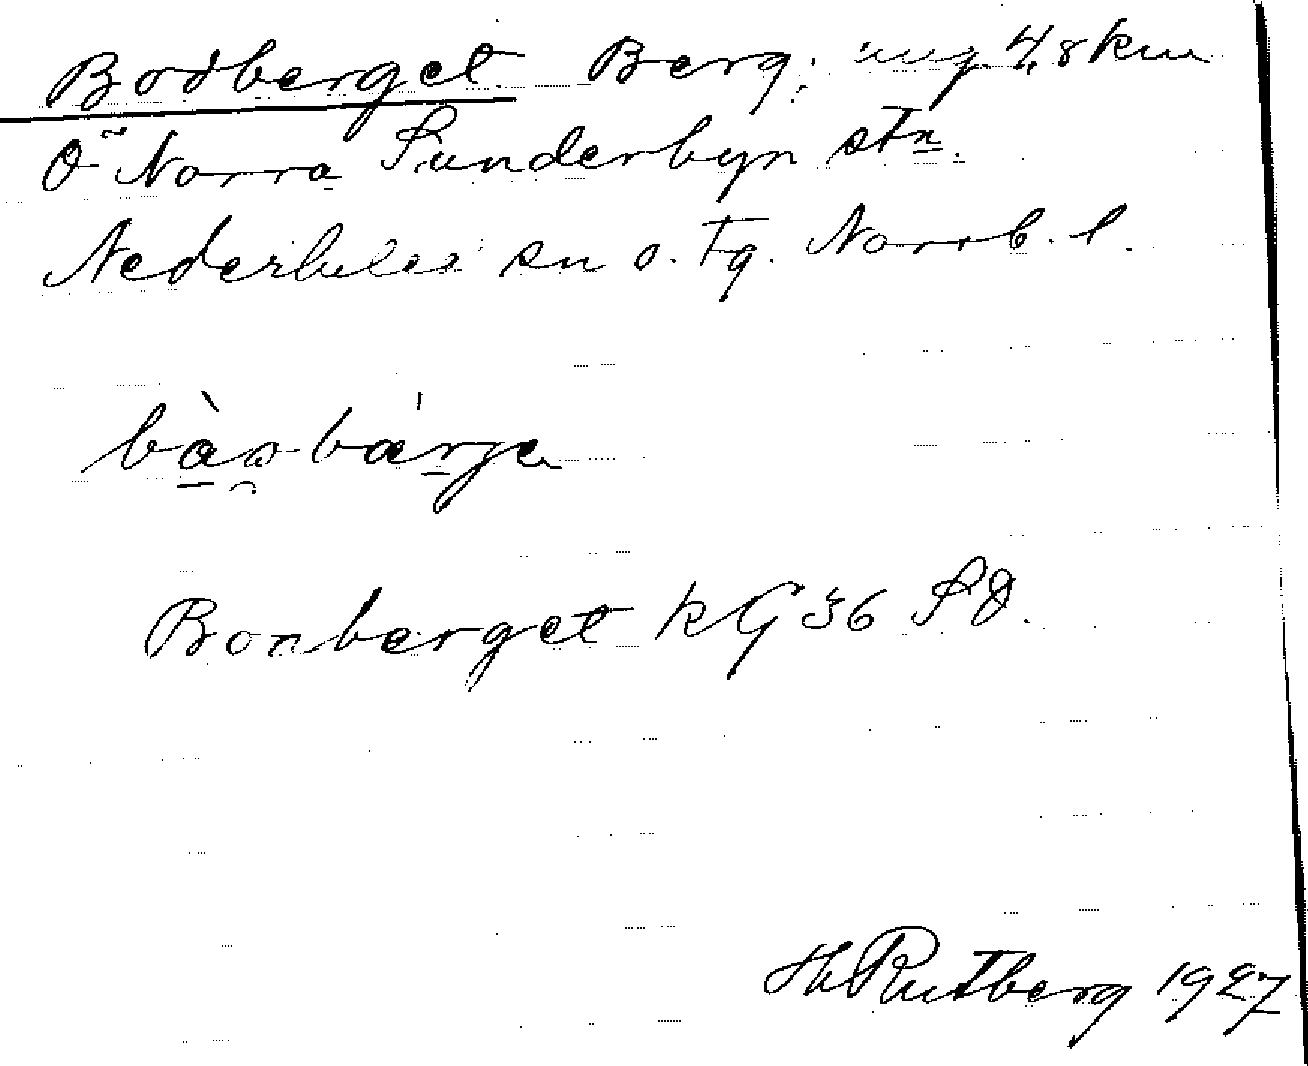 Bodberget Berg; ung 4,8 km
O Norra Sunderbyn stn.
Nederluleå sn o. tg. Norrb. l.
bàobárje
Bonberget kG 36 SO.
Hb Rutberg 1927